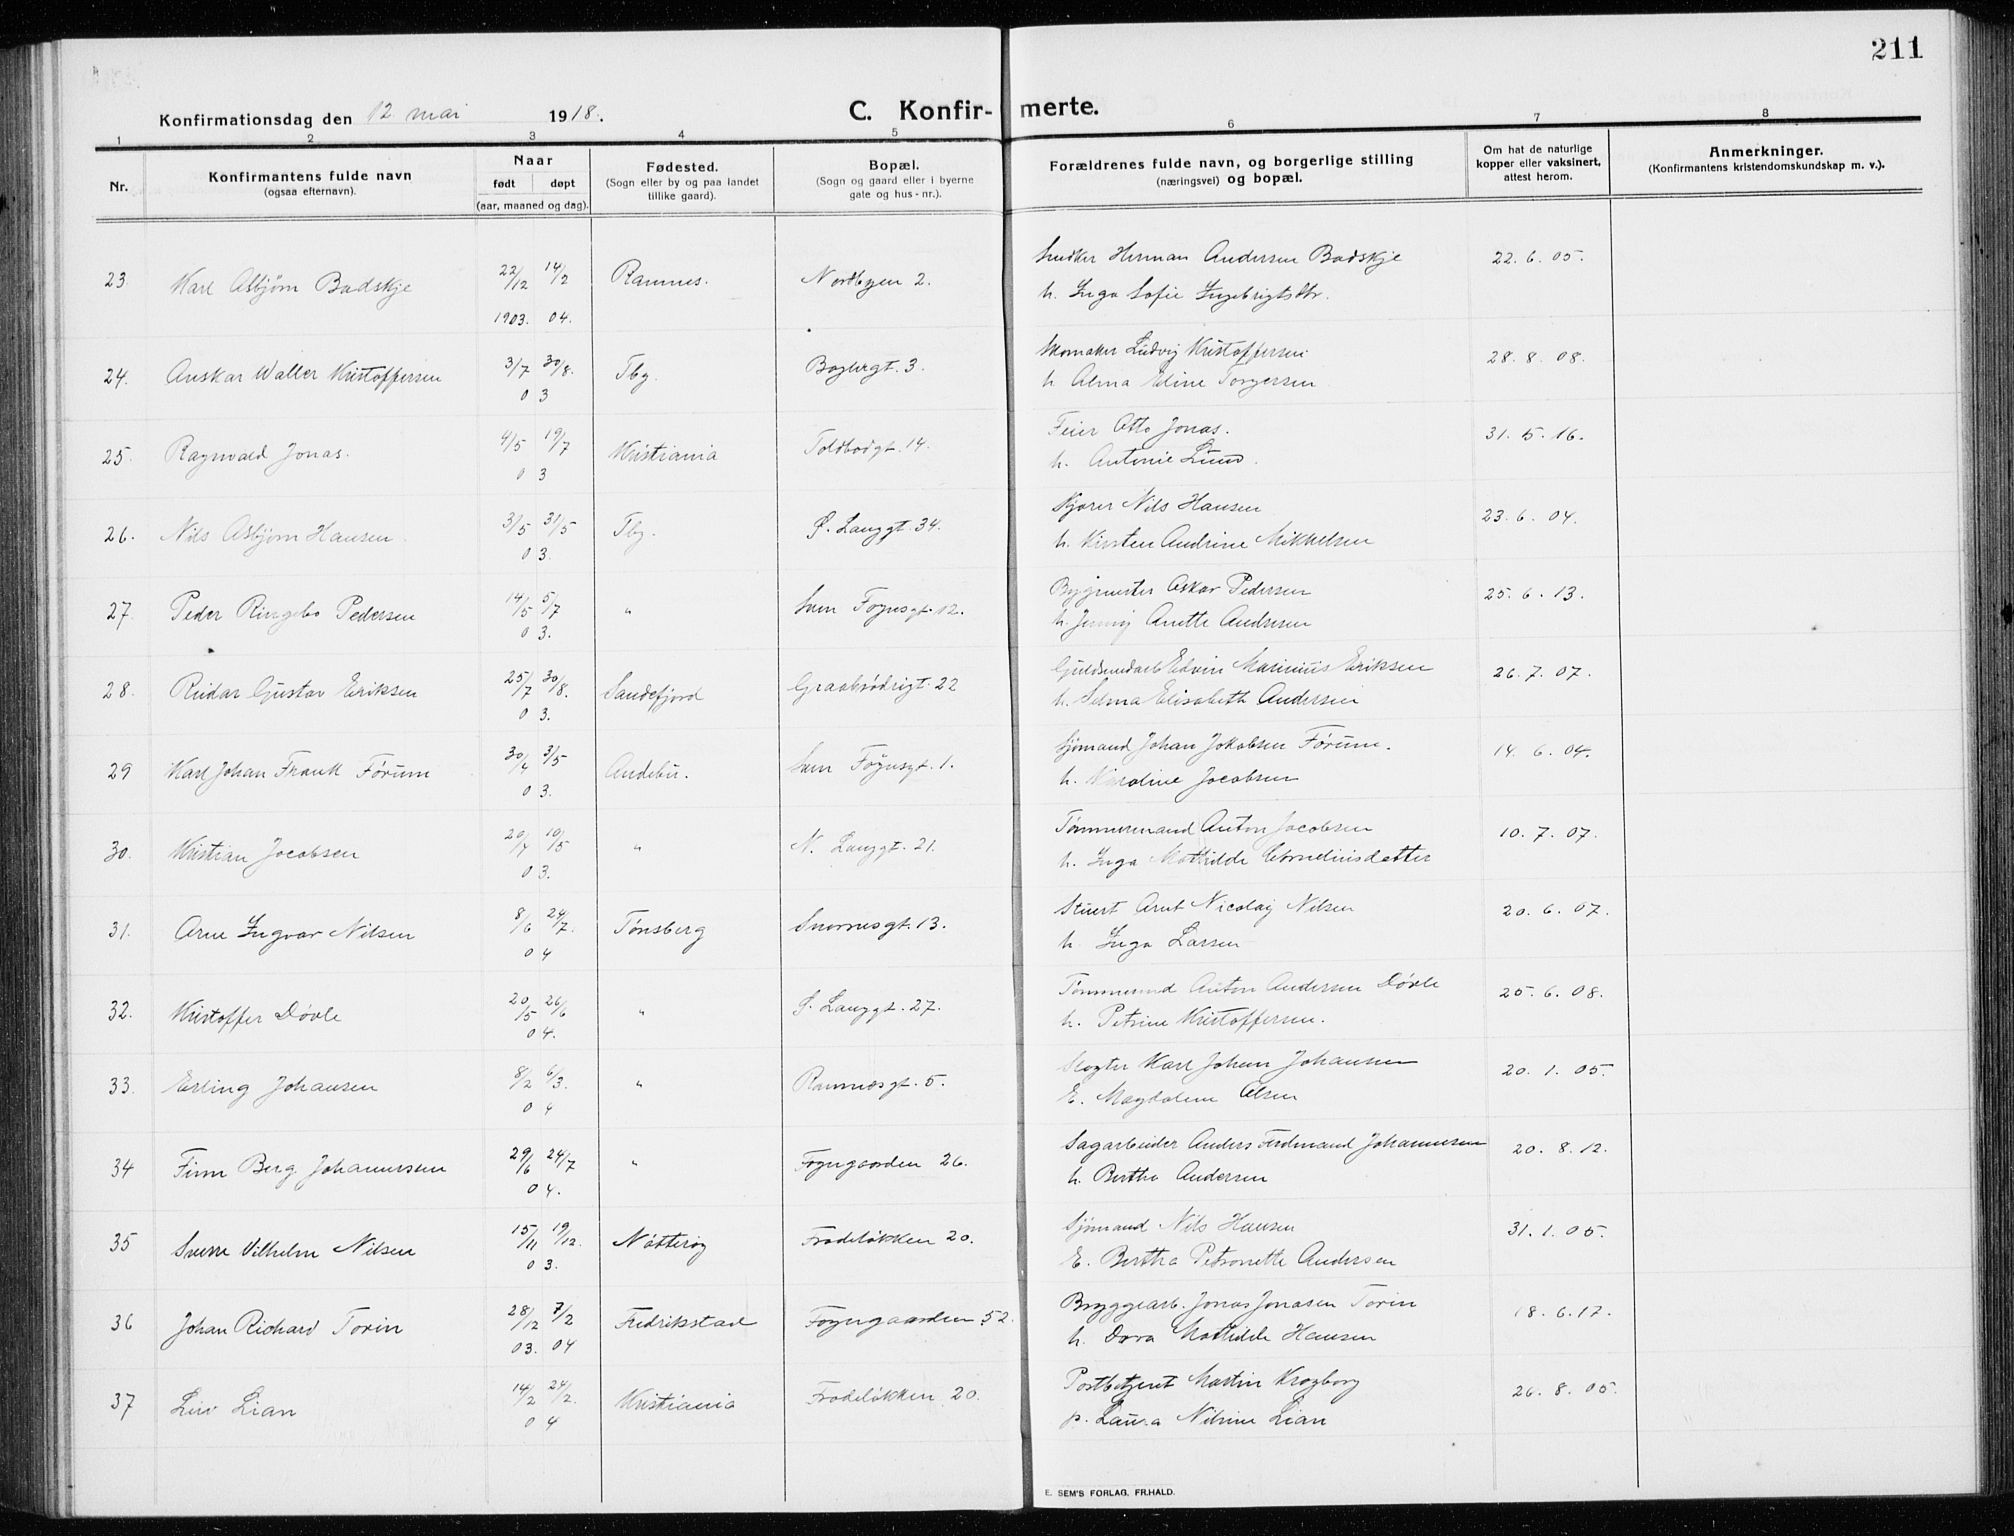 211
Konfirmationsdag den 12 mai 1918.
C. Konfirmerte.
1 2 3 4 5 6 7 8
Nr.
Konfirmantens fulde navn
(ogsaa efternavn).
Naar
født døpt
(aar, maaned og dag).
Fødested.
(Sogn eller by og paa landet
tillike gaard).
Bopæl.
(Sogn og gaard eller i byerne
gate og hus-nr.).
Forældrenes fulde navn, og borgerlige stilling
(næringsvei) og bopæl.
Om hat de naturlige
kopper eller vaksinert,
attest herom.
Anmerkninger.
(Konfirmantens kristendomskundskap m. v.).
23 Karl Asbjørn Badskje 22/12 1903. 14/2 04. Ramnes. Nordbyen 2. Snedker Herman Andersen Badskje 22.6.05.
h. Inga Sofie Ingebrigtsdtr.
24. Anskar Waller Kristoffersen 3/7 30/8. 03 Tbg. Bagbergt. 3. Skomaker Ludvig Kristoffersen 28.8.08.
h. Alma Eline Torgersen
25. Ragnvald Jonas. 4/5 19/7 03 Kristiania Toldbodgt. 14. Feier Otto Jonas. 31.5.16.
h. Antonie Lund.
26. Nils Asbjørn Hansen. 3/5 31/5 03. Tbg. Ø. Langgt. 34. Kjører Nils Hansen 23.6.04.
h. Kirsten Andrine Mikkelsen
27. Peder Ringebo Pedersen 14/5 5/7 03. " Svem Foynsgt. 12. Bygmester Oskar Pedersen 25.6.13.
h. Jenny Anette Andresen
28. Reidar Gustav Eriksen 25/7 30/8. 03. Sandefjord Graabrødrigt. 22 Guldsmedarb Edvin Marinius Eriksen 26.7.07.
h. Selma Elisabeth Andersen
29 Karl Johan Frank Førum 30/4 3/5 03. Andebu. Svem Foynsgt. 1. Sjømand Johan Jakobsen Førum. 14.6.04.
h. Karoline Jacobsen
30. Kristian Jacobsen 20/4 10/5 03. " N. Langgt. 21. Tømmermand Anton Jacobsen 10.7.07.
h. Inga Mathilde Corneliusdatter
31. Arne Ingvar Nilsen 8/6 24/7. 04 Tønsberg Snorresgt. 13. Stuert Arnt Nicolay Nilsen 20.6.07.
h. Inga Larsen
32. Kristoffer Døvle 20/5 26/6 04. " Ø. Langgt. 27. Tømmermd Anton Andersen Døvle 25.6.08.
h. Petrine Kristoffersen.
33. Erling Johansen 8/2 6/3. 04 " Ramnesgt. 5. Slagter Karl Johan Johansen 20.1.05.
E. Magdalene Olsen
34 Finn Berg. Johannessen 29/6 24/7 04. " Foyngaarden 26. Sagarbeider Anders Ferdinand Johannesen 20.8.12.
h. Bertha Andersen
35 Sverre Vilhelm Nilsen 15/11 19/12. 03. Nøtterøy Frodeløkken 20. Sjømand Nils Hansen 31.1.05.
E. Bertha Petronette Andersen
36 Johan Richard Torin 28/12 03. 7/2 04 Fredrikstad Foyngaarden 52. Bryggearb. Jonas Jonasen Torin 18.6.17.
h. Dora Mathilde Hansen
37 Liv Lian 14/2 24/2. 04 Kristiania Frodeløkken 20. Postbetjent Martin Krogborg 26.8.05.
p. Laura Nilsine Lian
E. SEM'S FORLAG, FR.HALD.